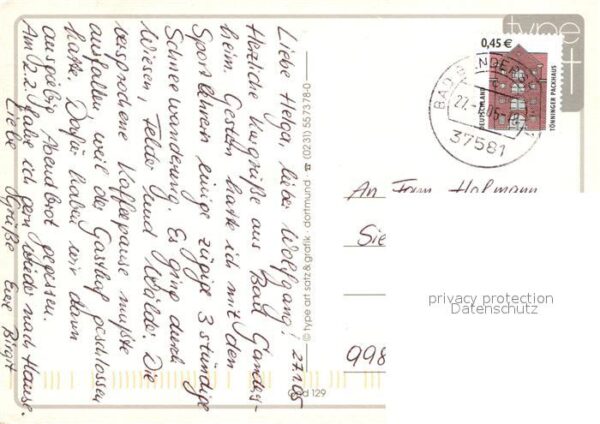 Liebe Helga, liebe Wolfgang! 27.1.05
Herzliche Kurgrüße aus Bad Ganders-
heim. Gestern hatte ich mit den
Sportlehrern einige zügige 3 stündige
Schneewanderung. Es ging durch
Wiesen, Felder und Wälder. Die
versprochene Kaffeepause mußte
ausfallen weil der Gasthof geschlossen
hatte. Dafür haben wir dann
ausgiebig Abendbrot gegessen.
Am 2.2. fahre ich gen wieder nach Hause.
Liebe Grüße Eure Birgit
© type art satz & grafik · dortmund ☎ (0231) 557378-0
129
type art
0,45 €
DEUTSCHLAND
TÖNNINGER PACKHAUS
BAD GANDERSHEIM
27.-1.05-
37581
An Fam. Hofmann
Sie
998
privacy protection
Datenschutz